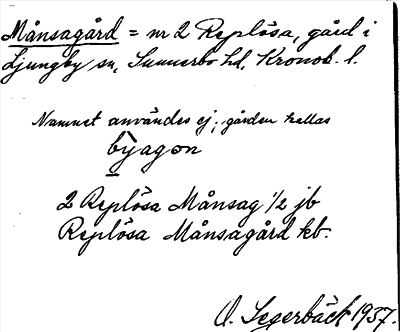 Månsagård = nr 2 Replösa, gård i
Ljungby sn, Sunnerbo hd, Kronob. l.
Namnet användes ej; gården kallas
byagon
2 Replösa Månsag 1/2 jb
Replösa Månsagård kb.
O. Segerbäck 1937.